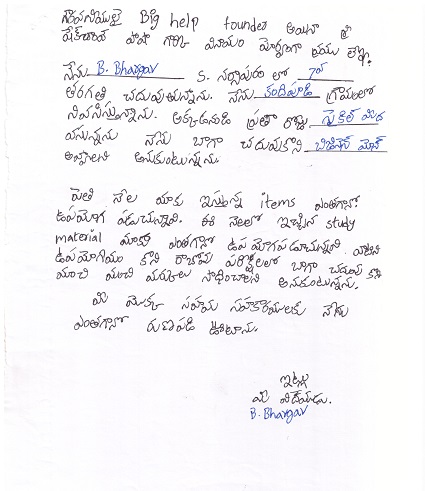 గౌరవనీయులైన Big help founder అయిన శ్రీ
షేక్‌చాంద్ పాషా గారికి వినయం పూర్వకంగా వ్రాయు లేఖ.
నేను B. Bhargav S. నర్సాపురం లో 7వ
తరగతి చదువుతున్నాను. నేను కందిపాడి గ్రామంలో
నివసిస్తున్నాను. అక్కడనుండి ప్రతి రోజు సైకిల్ మీద
వస్తున్నను నేను బాగా చదువుకొని బిజినెస్ మాన్
అవ్వాలని అనుకుంటున్నను.
ప్రతి నెల మాకు ఇస్తున్న items ఎంతగానో
ఉపయోగ పడుచున్నావి. ఈ నెలలో ఇచ్చిన study
material మాకు ఎంతగానో ఉపయోగపడుచున్నది. వాటిని
ఉపయోగించు కొని రాబోవు పరీక్షలలో బాగా చదువు కొని
మంచి మంచి మార్కులు సాధించాలని అనుకుంటున్నను.
మీ యొక్క సహయ సహకారములకు నేను
ఎంతగానో రుణపడి ఉంటాను.
ఇట్లు
మీ విదేయుడు.
B. Bhargav